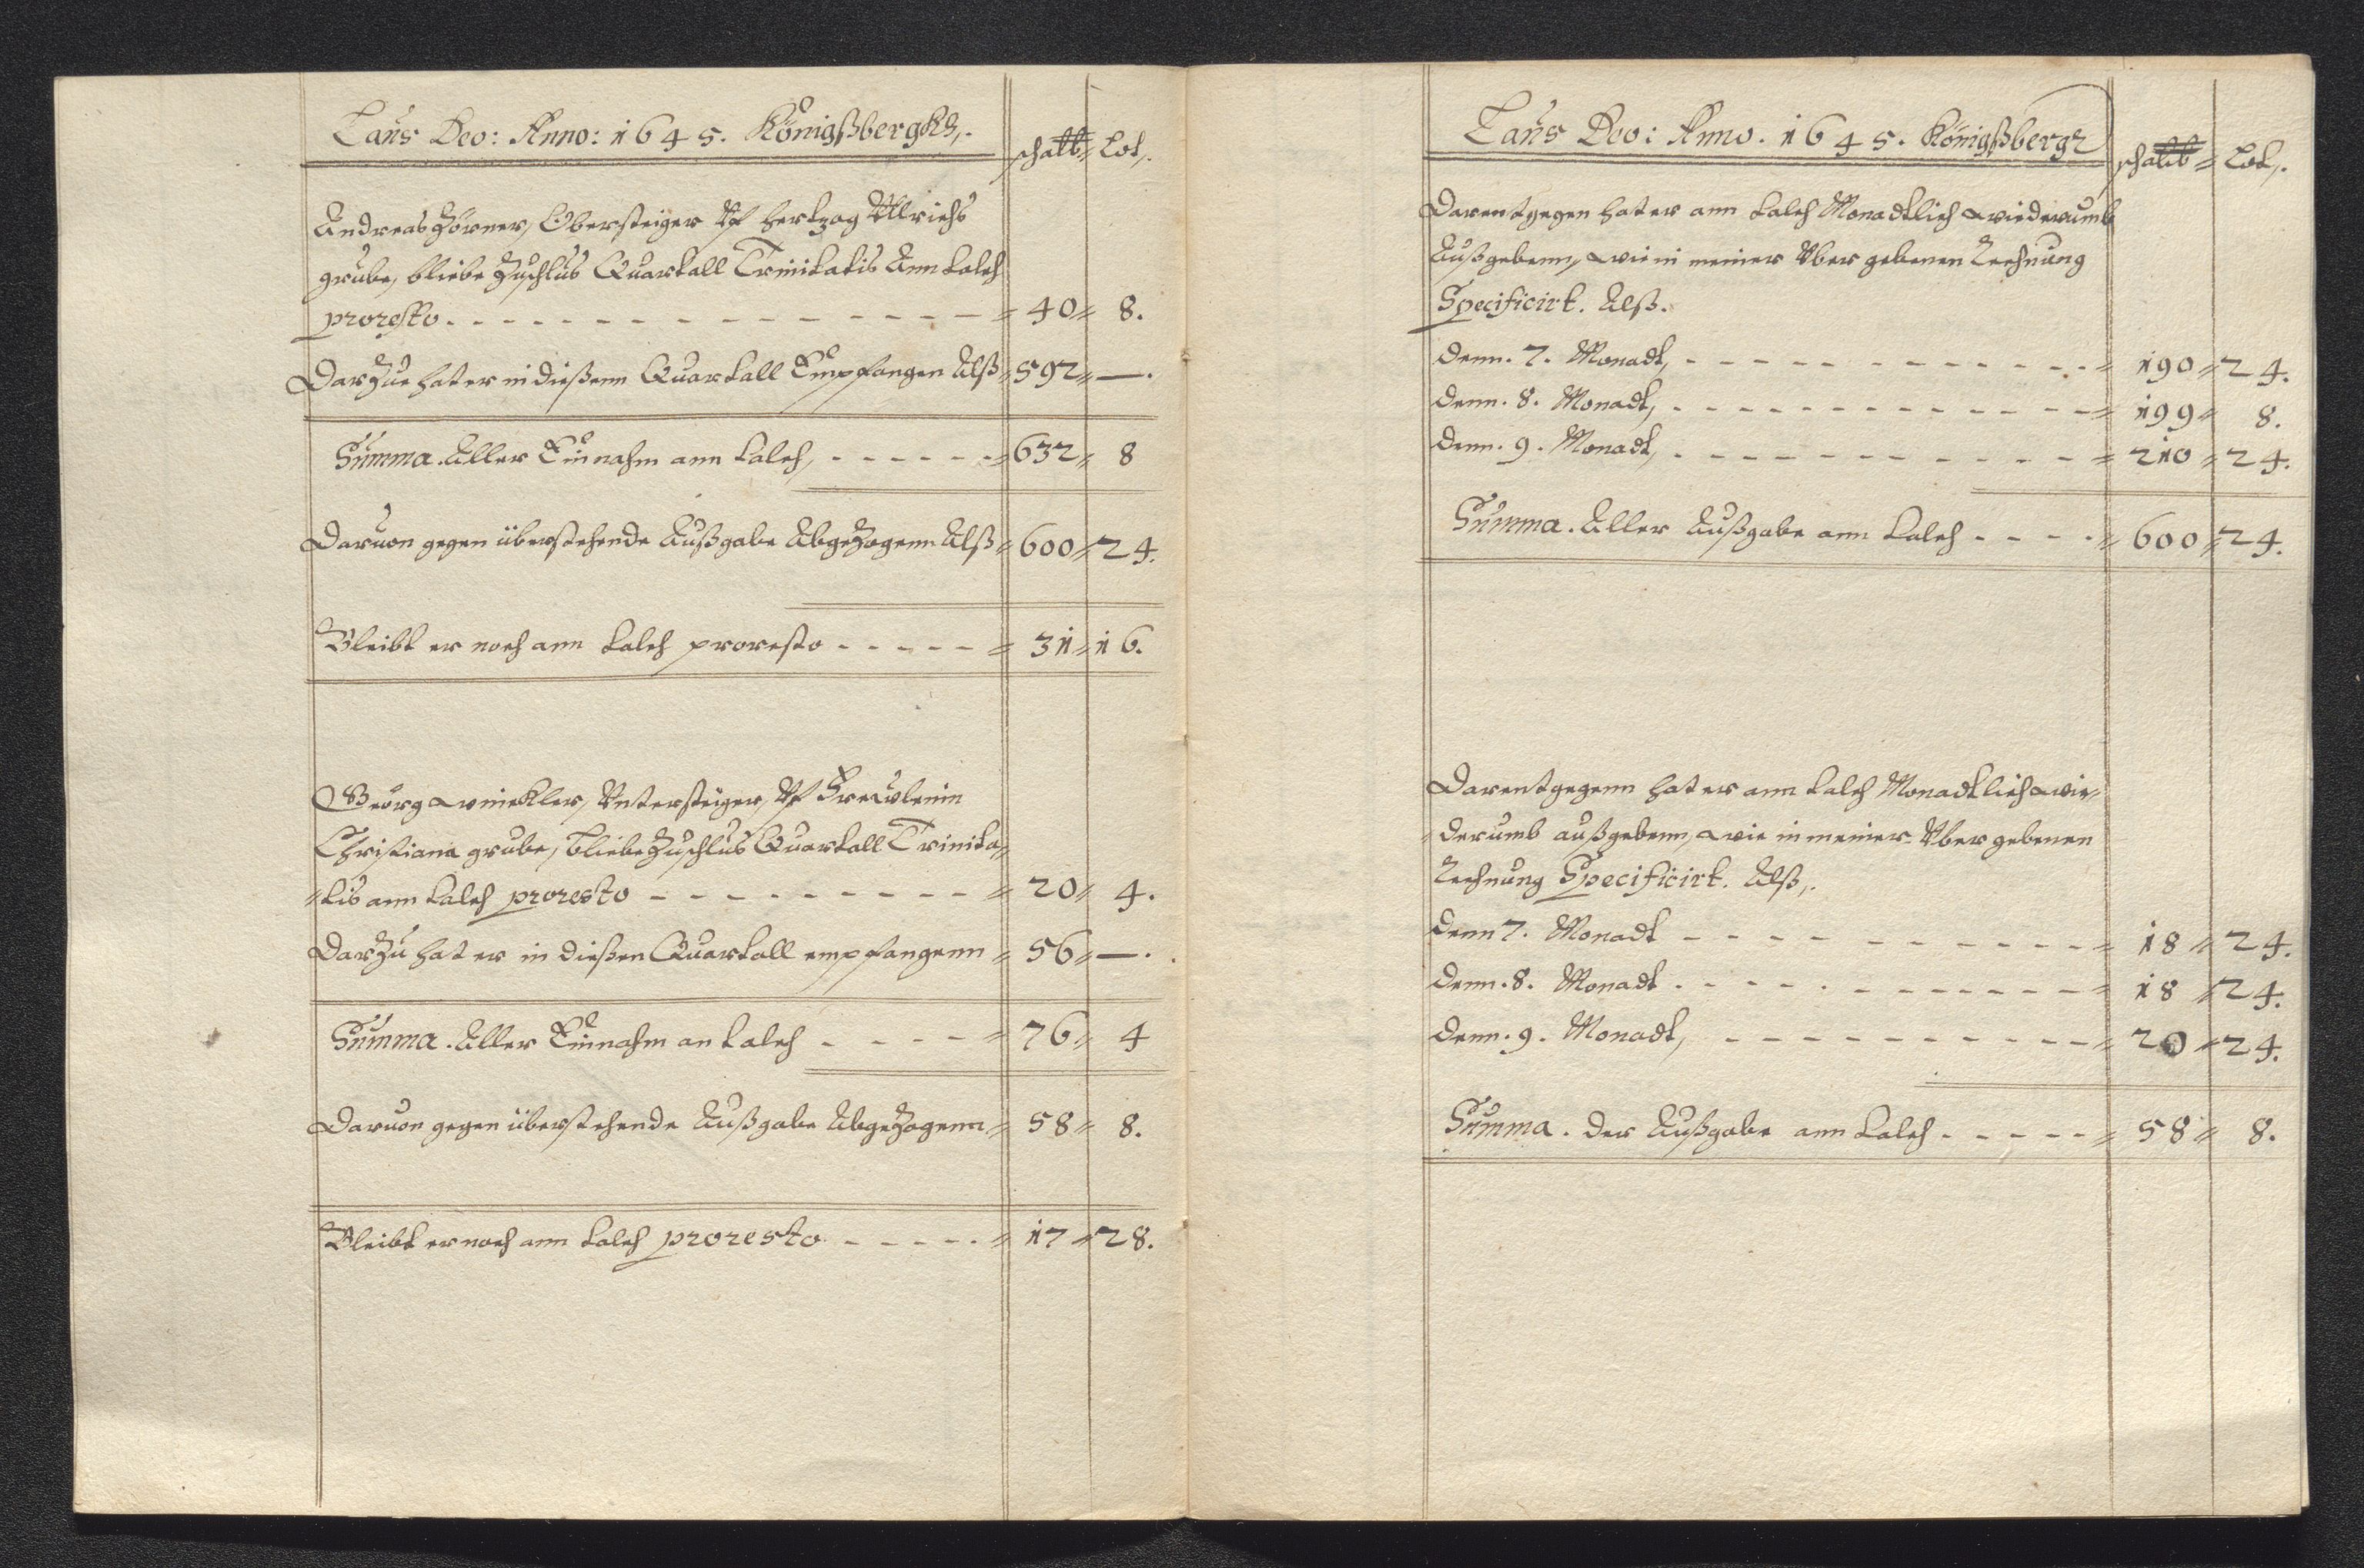 Laus Deo: Anno: 1645. Königßbergks,.
schalb= Lot,.
Andreas Hörner, Obersteiger Vf Hertzog Ullrichs
grube, bliebe Zuschlus Quartall Trinitatis Ann talch
proresto - - - 40 = 8.
DarZue hat er in dießenn Quartall Empfangen Alß = 592 = —.
Summa. Aller Einnahm ann talch, - - - 632 = 8
Daruon gegen überstehende Außgabe AbgeZogenn Alß = 600 = 24.
Bleibt er noch ann talch proresto - - - 31 = 16.
Georg Winckler, Untersteiger, Vf Freuwlenin
Christiana grube, bliebe Zuschlus Quartall Trinita=
=tis ann talch proresto - - - 20 = 4.
DarZu hat er in dießen Quartall empfangenn = 56 = —.
Summa. Aller Einnahm an talch - - - 76 = 4
Daruon gegen überstehende Außgabe AbgeZogenn = 58 = 8.
Bleibt er noch ann talch proresto - - - 17 = 28.
Laus Deo: Anno. 1645. Königßbergk
schalb = Lot,.
Darentgegen hat er ann talch Monadtlich Wiederumb
Außgebenn, Wie in meiner Vbergebenen Rechnung
Specificirt. Alß.
Denn. 7. Monadt, - - - 190 = 24.
Denn. 8. Monadt, - - - 199 = 8.
Denn. 9. Monadt, - - - 210 = 24.
Summa. Aller Außgabe ann talch - - - 600 = 24.
Darentgegenn hat er ann talch Monadtlich Wie=
=derumb außgebenn, Wie in meiner Vbergebenen
Rechnung Specificirt. Alß,.
Denn 7. Monadt - - - 18 = 24.
Denn. 8. Monadt - - - 18 = 24.
Denn. 9. Monadt, - - - 20 = 24.
Summa. der Außgabe ann talch - - - 58 = 8.